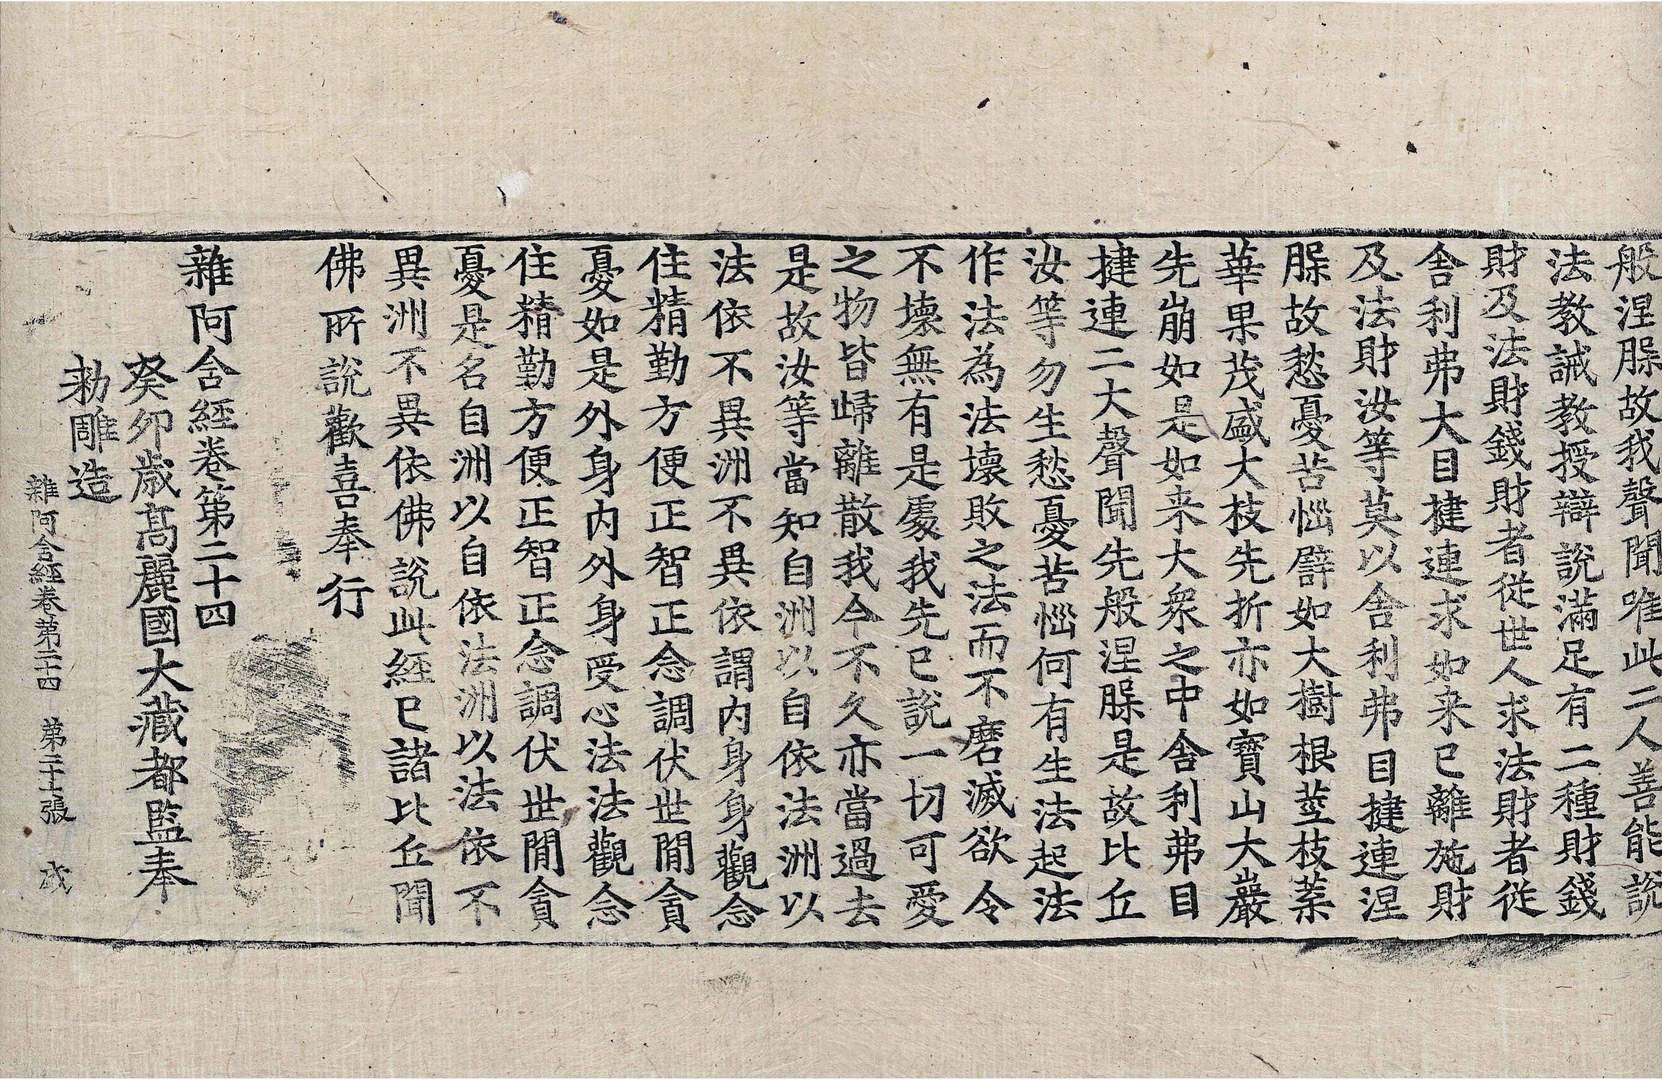 般涅脲故我聲聞唯此二人善能說
法教誡教授辯說滿足有二種財錢
財及法財錢財者從世人求法財者從
舍利弗大目揵連求如来已離施財
及法財汝等莫以舍利弗目揵連涅
脲故愁憂苦惱譬如大樹根莖枝葉
華果茂盛大枝先折亦如寶山大巖
先崩如是如来大衆之中舍利弗目
揵連二大聲聞先般涅脲是故比丘
汝等勿生愁憂苦惱何有生法起法
作法為法壞敗之法而不磨滅欲令
不壞無有是處我先已說一切可愛
之物皆歸離散我今不久亦當過去
是故汝等當知自洲以自依法洲以
法依不異洲不異依謂内身身觀念
住精勤方便正智正念調伏世閒貪
憂如是外身内外身受心法法觀念
住精勤方便正智正念調伏世閒貪
憂是名自洲以自依法洲以法依不
異洲不異依佛說此經已諸比丘聞
佛所說歡喜奉行
雜阿含經卷第二十四
癸卯歲高麗國大藏都監奉
勑雕造
雜阿含經卷第二十四 第二十七張 成